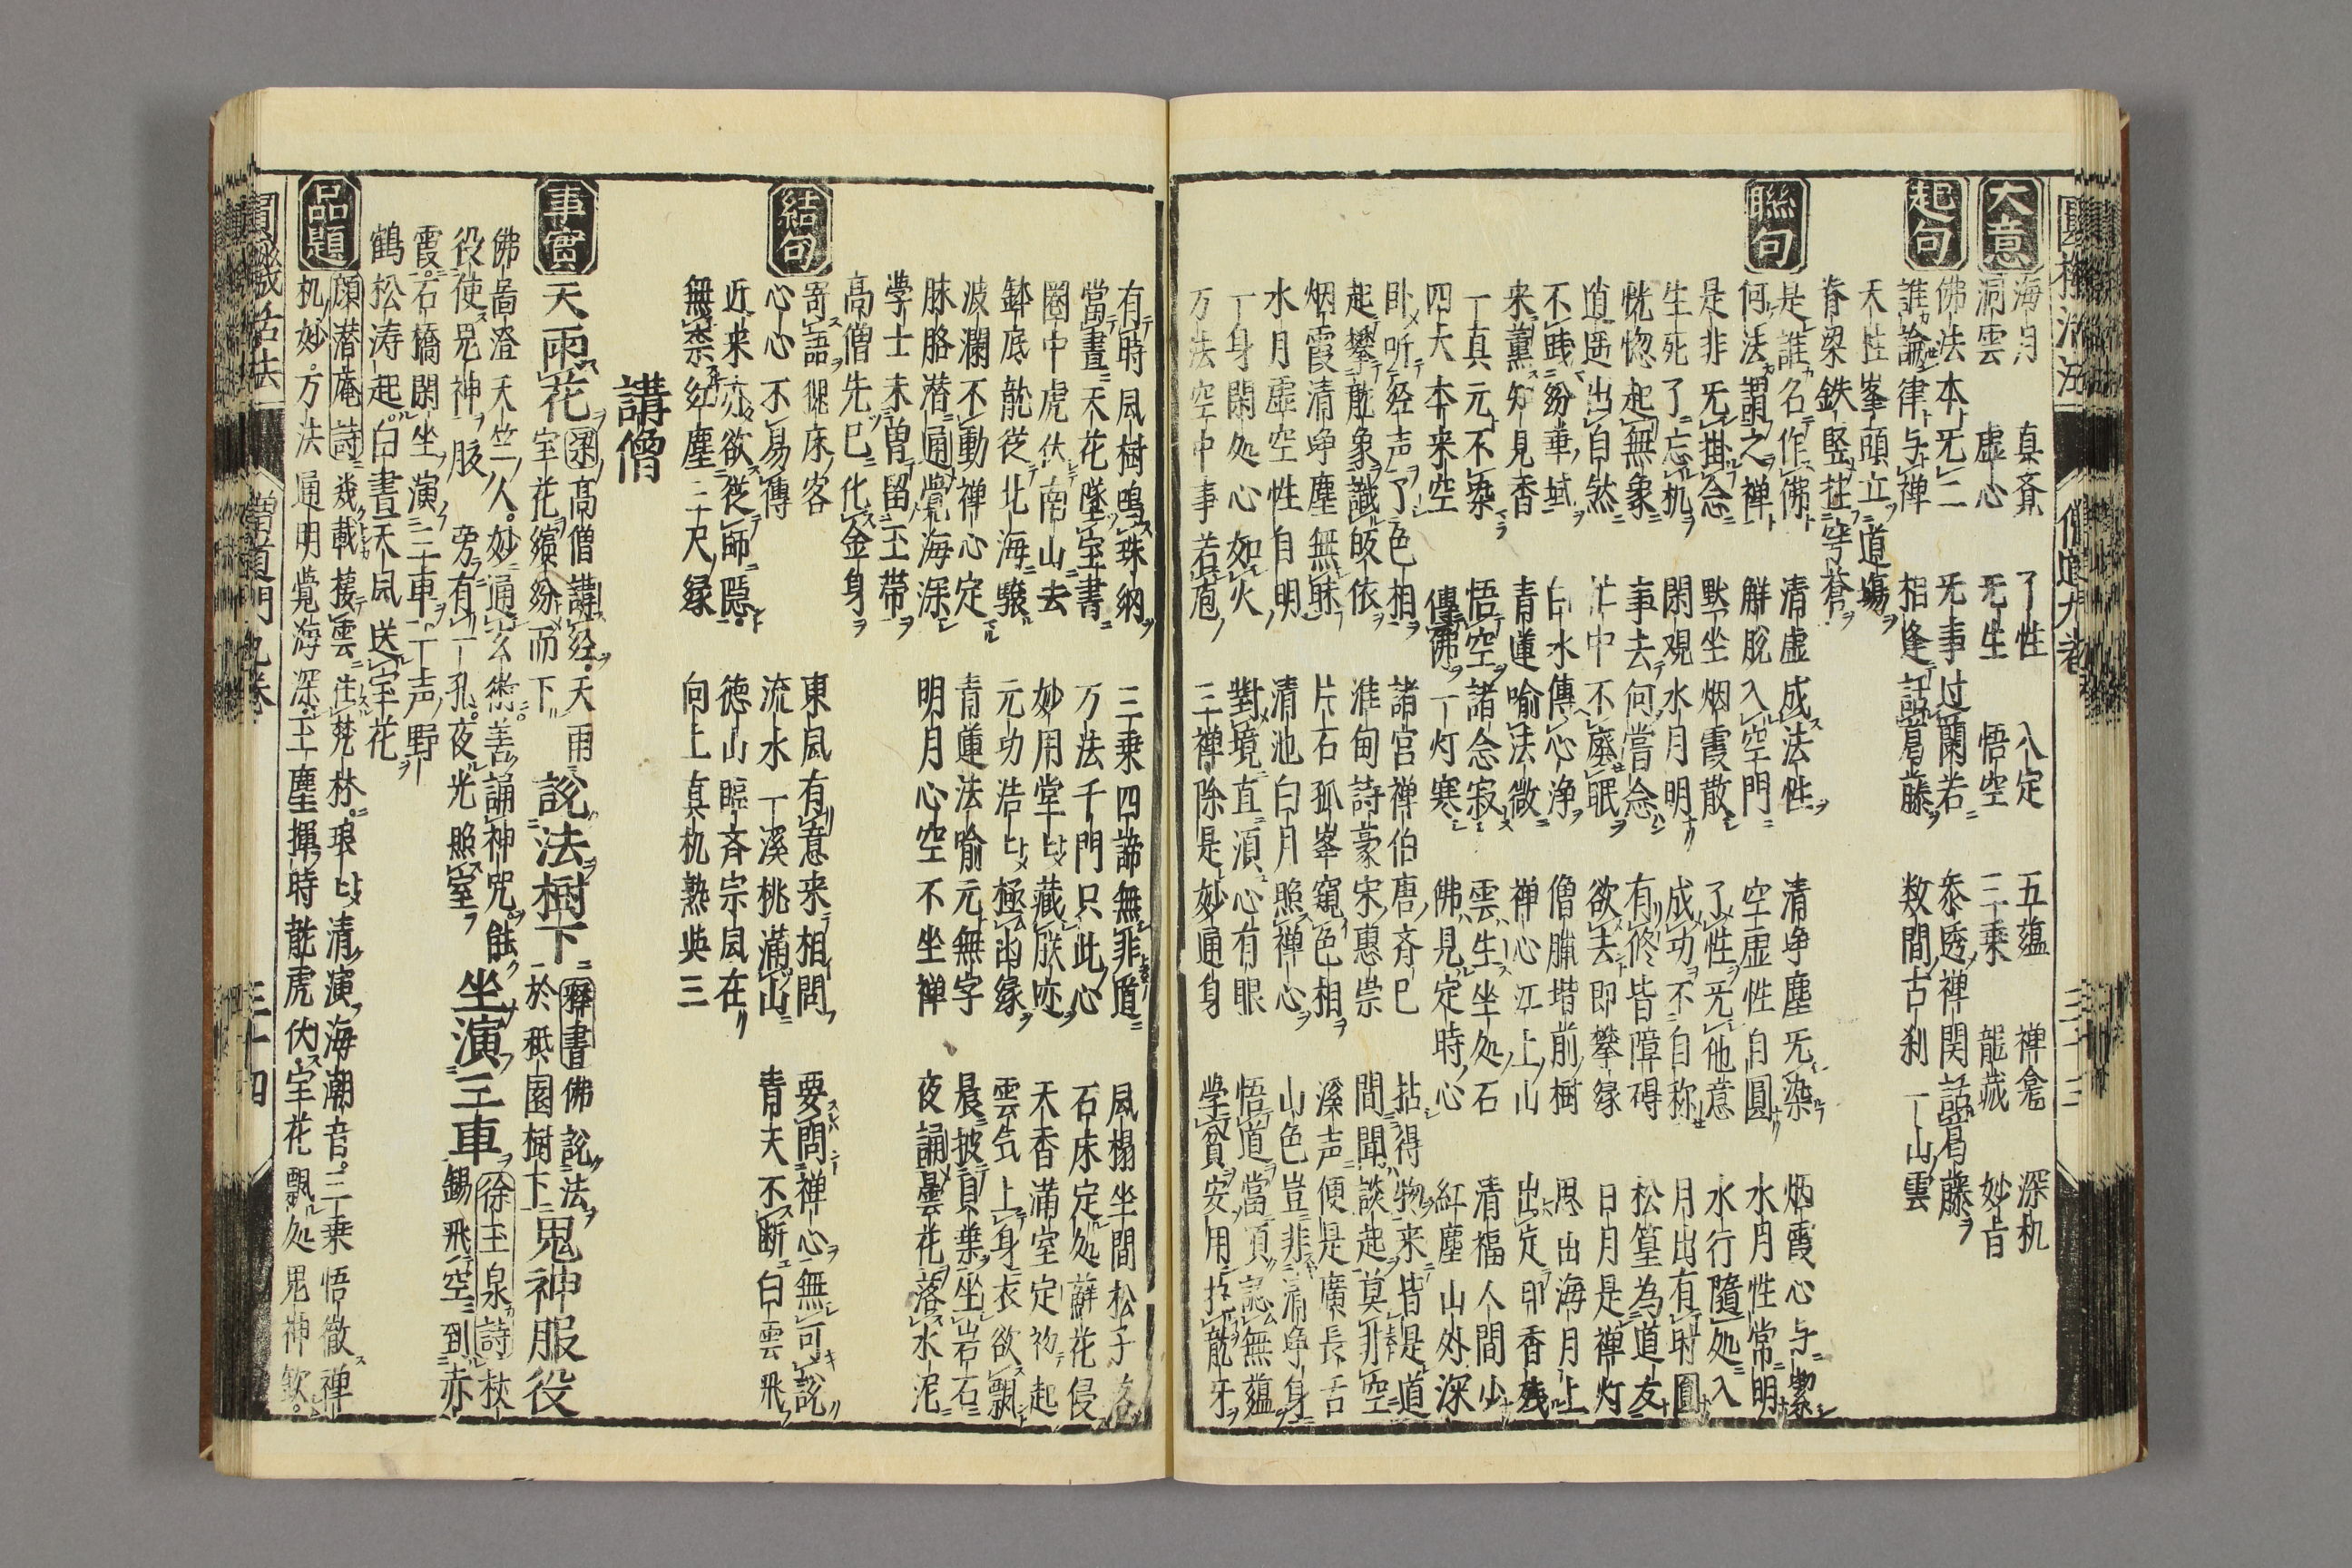 大意
海月 真斎 了性 入定 五蘊 禅龕 深机
洞雲 虚心 无生 悟空 三乗 龍藏 妙旨
起句
佛法本无二 无事过蘭若 叅透禅関話葛藤
誰論律与禅 相逢話葛藤 数間古刹一山雲
天性峯頭立道塲
脊梁鉄竪拄穹蒼
聯句
是誰名作佛 清虚成法性 清浄塵无染 烟霞心与潔
何法謂之禅 解脱入空門 空虚性自圓 水月性常明
是非无掛念 黙坐烟霞散 了性无他意 水行隨処入
生死了忘机 閑観水月明 成功不自称 月出有時圓
恍惚起無象 事去何嘗念 有修皆障碍 松篁為道友
逍遥出自然 忙中不廃眠 欲去即攀縁 日月是禅灯
不践紛華域 白水傳心浄 僧臘堦前樹 思出海月上
来薫知見香 青蓮喻法微 禅心江上山 出定印香残
一真元不染 悟空諸念寂 雲生坐処石 清福人間少
四大本来空 傳佛一灯寒 佛見定時心 紅塵山外深
卧听经声了色相 諸宮禅伯唐斉已 拈得物来皆是道
起攀龍象識皈依 淮甸詩豪宋惠崇 間聞談起莫非空
烟霞清浄塵無昧 片石孤峯窺色相 溪声便是廣長舌
水月虚空性自明 清池白月照禅心 山色豈非清浄身
一身閑処心如火 對境直須心有眼 悟道當頂認無蘊
万法空中事若庖 三禅除是妙通身 学貧安用拔龍牙
有時風樹鳴珠納 三乗四諦無非道 風榻坐間松子落
當晝天花墜宝書 万法千門只此心 石床定処蘚花侵
圏中虎伏南山去 妙用堂堂藏朕迹 天香滿室定初起
鉢底龍従北海驤 元功浩浩極幽縁 雲气上身衣欲飄
波瀾不動禅心定 青蓮法喻元無字 晨披貝葉坐岩石
脉胳潜通覚海深 明月心空不坐禅 夜誦曇花落水泥
学士未曽留玉帯
高僧先已化金身
結句
寄語繩床客 東風有意来相問 要問禅心無可説
心心不易傳 流水一溪桃滿山 青天不断白雲飛
近来亦欲従師隠 徳山臨斉宗風在
無柰紅塵三尺縁 向上真机熟奐三
講僧
事實
天雨花 梁高僧講经天雨
宝花繽紛而下 説法樹下 釋書佛説法
於秪園樹下 鬼神服役
佛啚澄天竺人妙通玄術善誦神咒能
役使鬼神腋旁有一孔夜光照室 坐演三車 徐玉泉詩杖
錫飛空到赤
霞石橋閑坐演三車一声野
鶴松涛起白晝天風送宝花
品題
顔潜庵詩 幾載接雲住梵林琅琅清演海潮音三乗悟徹禅
机妙万法通明覚海深玉塵揮時龍虎伏宝花飄処鬼神欽
僧道門九巻
三十四
三十三